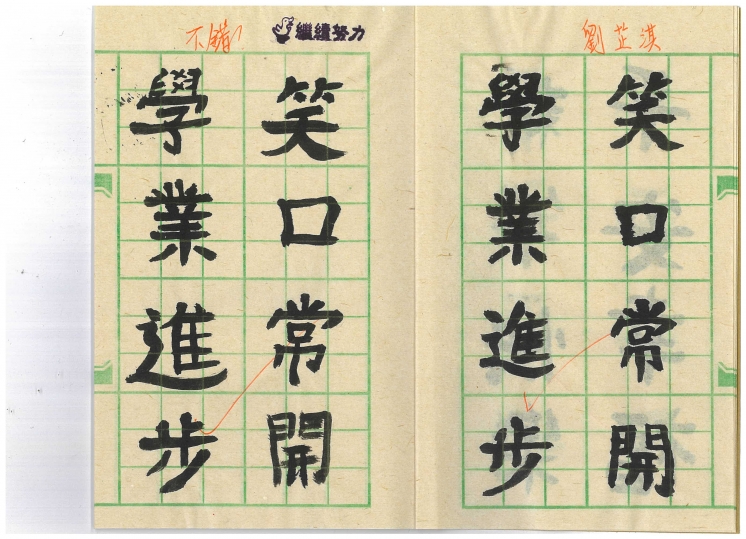 劉芷淇
笑口常開
學業進步
不錯
繼續努力
笑口常開
學業進步